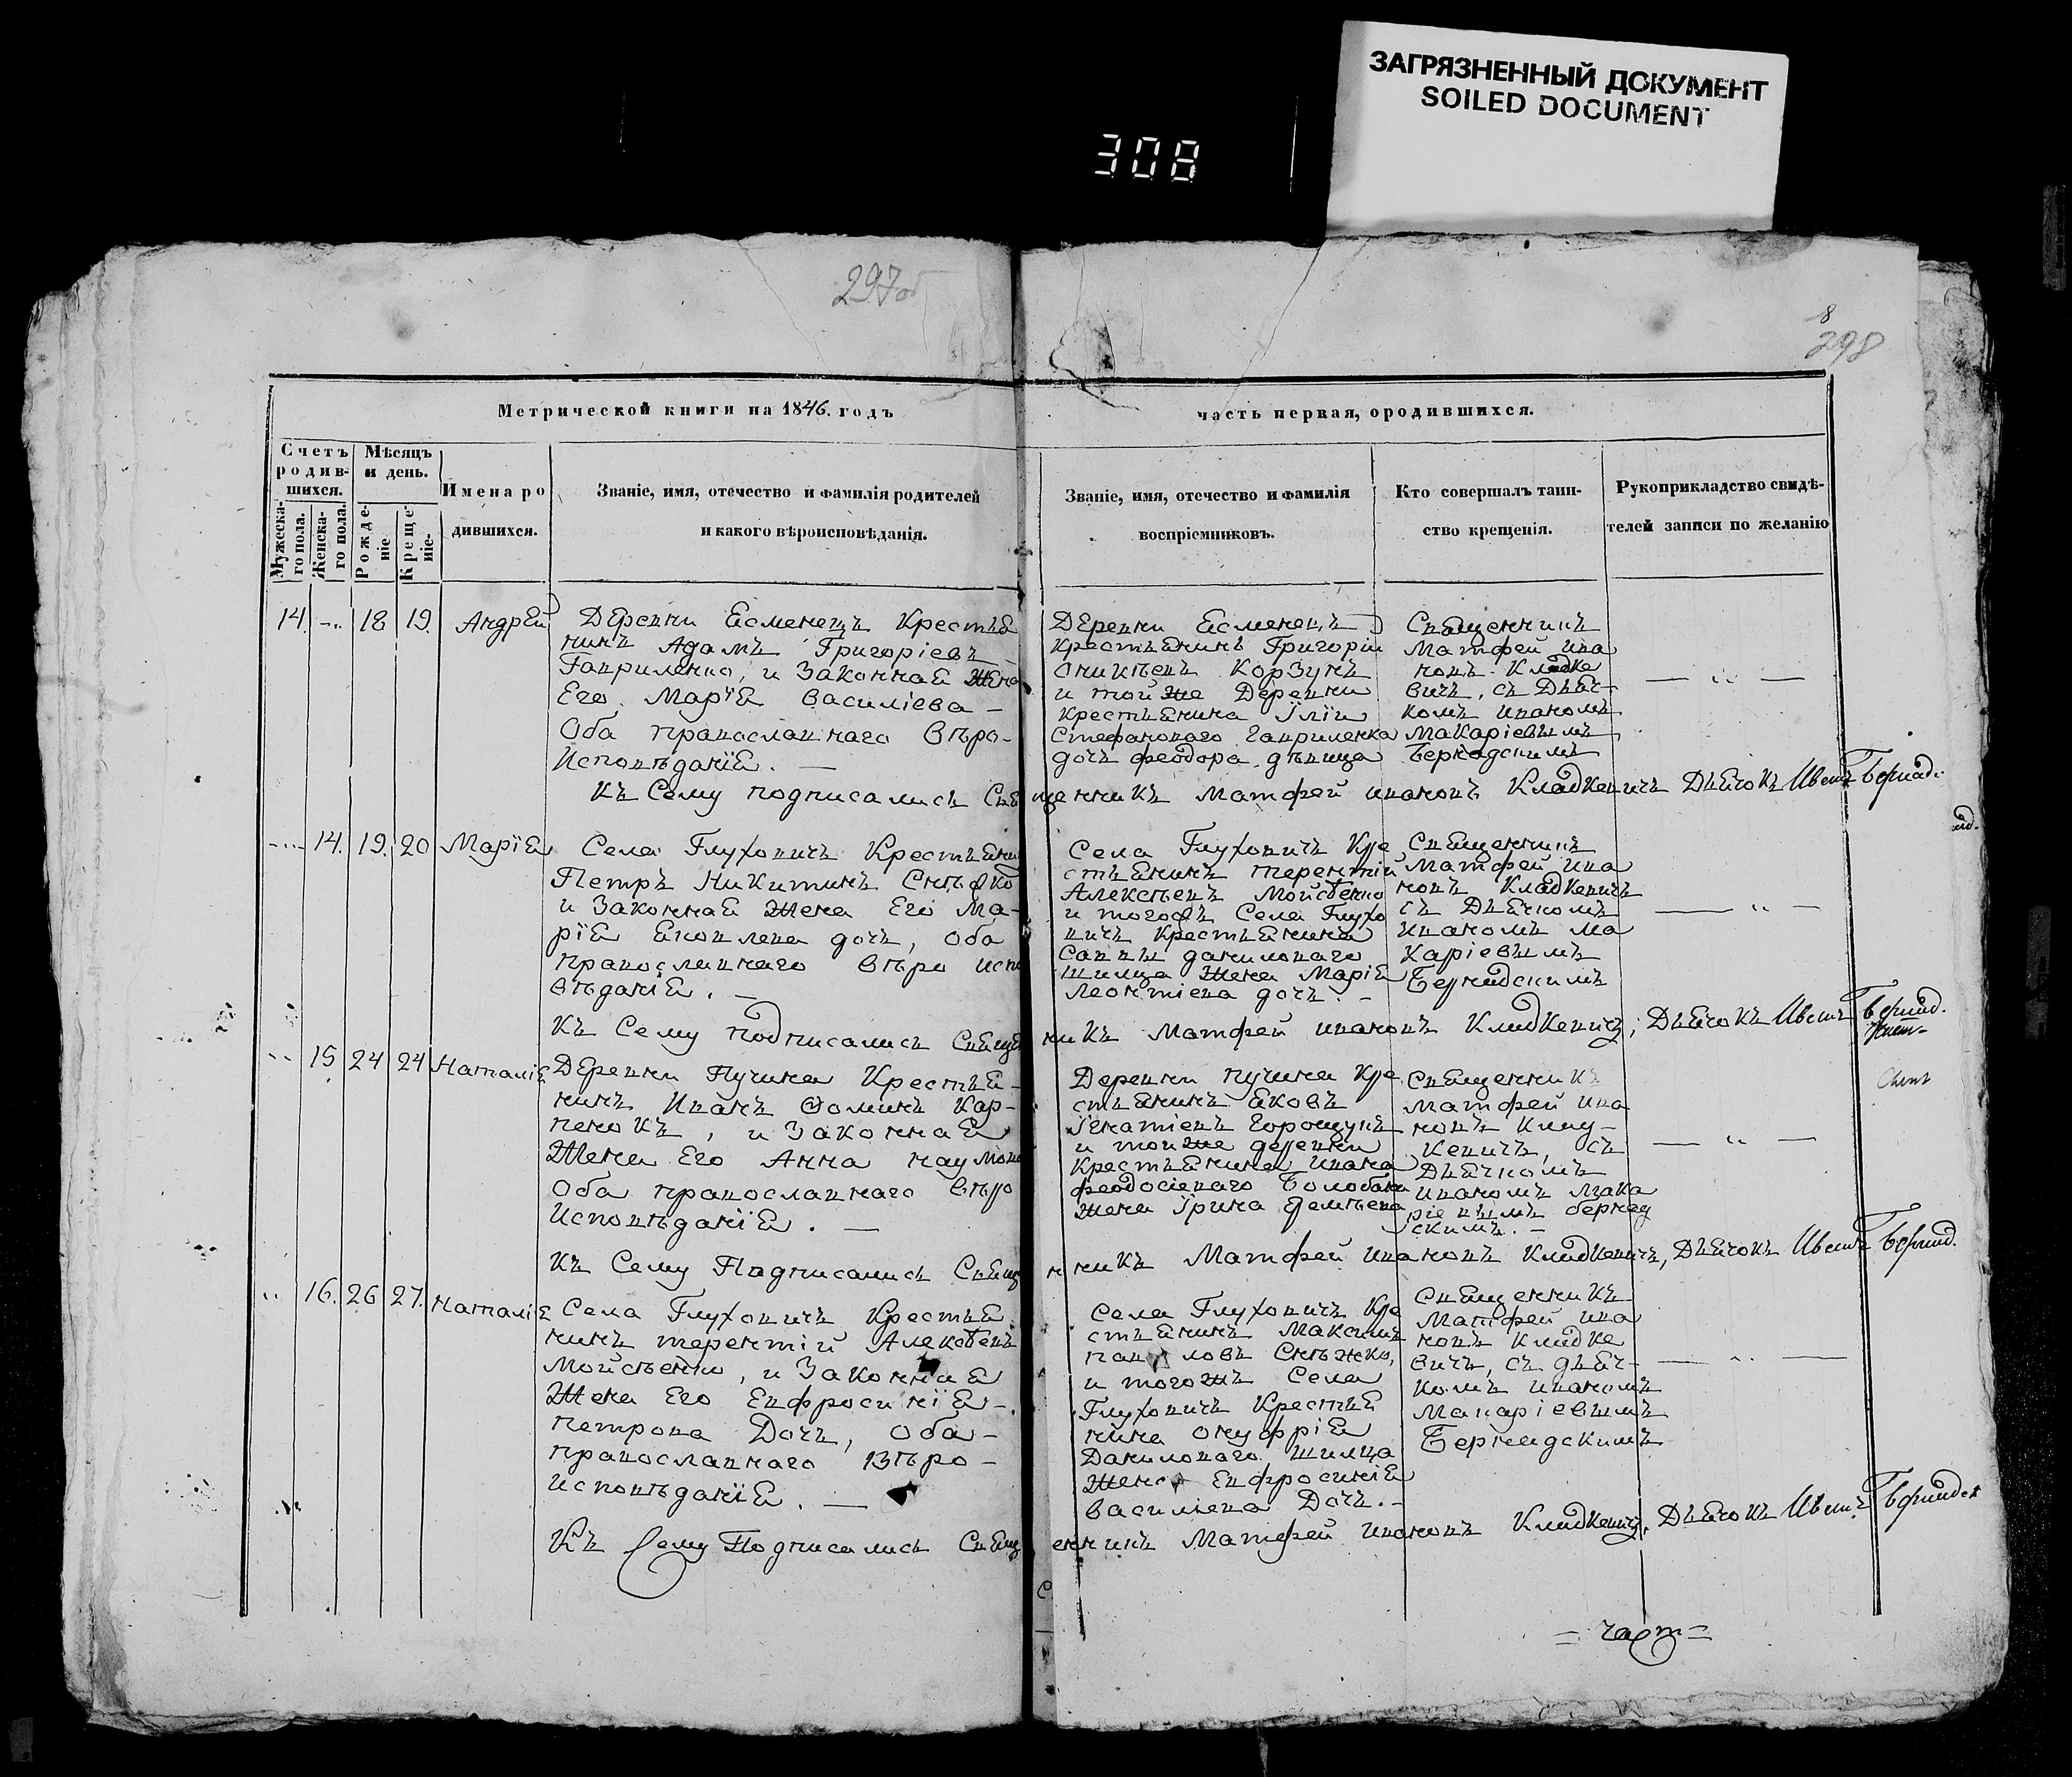 ЗАГРЯЗНЕННЫЙ ДОКУМЕНТ
SOILED DOCUMENT
308
297об
8
298
Метрической книги на 1846. годъ
часть первая, о родившихся.
Счетъ родив-шихся.
Мужеска-го пола.
Женска-го пола.
Мѣсяцъ и день.
Рожде-ніе
Креще-ніе.
Имена ро дившихся.
Званіе, имя, отечество и фамилія родителей
и какого вѣроисповѣданія.
Званіе, имя, отечество и фамилія
воспріемниковъ.
Кто совершалъ таин-
ство крещенія.
Рукоприкладство свидѣ-
телей записи по желанію
14. -.. 18 19. Андрей
Деревни Есменецъ Крестья
нинъ Адамъ Григоріевъ
Гавриленко, и Законная Жена
Его Марїя Василіева –
Оба православнаго вѣро-
Исповѣданїя. —
Деревни Есменецъ
крестьянинъ Григорій
и той же Деревни
крестьянина Їліи
Стефановаго Гавриленка
дочь феодора дѣвица
Священникъ
Матфей Ива
новъ Кладке
вичъ, съ Дьяч-
комъ Иваномъ
Макаріевымъ
Бернадскимъ
— „ —
Къ Сему подписались Священникъ Матфей Ивановъ Кладкевичъ Дьячокъ Иванъ Бернад.
.... 14. 19. 20 Марїя
Села Глуховичъ Крестьяни
Петръ Никитинъ
и Законная Жена Его Ма-
рїя Яковлева дочь, Оба
православнаго вѣро испо
вѣданїя. —
Села Глуховичъ Кре
стьянинъ Терентій
Алексѣевъ Мойсѣенко
и тогожъ Села Глухо
вичъ крестьянина
Саввы даниловаго
Шилца Жена Марія
Леонтіева дочь. –
Священникъ
Матфей Ива
новъ Кладкевичъ
съ Дьячкомъ
Иваномъ Ма
каріевымъ
Бернадскимъ
— „ —
Къ Сему Подписались Священникъ Матфей Ивановъ Кладкевичъ, Дьячокъ Иванъ Бернад.
.. 15 24 24 Наталія
Деревни Пучина Крестья-
нинъ Иванъ Фоминъ Кар-
пенокъ, и Законная
Жена Его Анна Наумова
Оба православнаго вѣро
Исповѣданїя. —
Деревни Пучина Кре
стьянинъ Яковъ
и тойже деревни
Крестьянина Ивана
феодосіеваго
Жена Їрина
Священникъ
Матфей Ива
новъ Клад-
кевичъ, съ
Дьячкомъ
Иваномъ Мака
ріевымъ Бернад
скимъ. –
— „ —
Къ Сему Подписались Священникъ Матфей Ивановъ Кладкевичъ, Дьячокъ Иванъ Бернад.
.. 16. 26 27. Наталія
Села Глуховичъ Крестья
нинъ Терентій Алексѣевъ
Мойсѣенко, и Законная
Жена Его Евфросинїя –
Петрова Дочь, Оба –
православнаго вѣро –
исповѣданїя. —
Села Глуховичъ Кре
стьянинъ Максимъ
и тогожъ Села
Глуховичъ Крестья
нина Онуфрїя
Даниловаго Шилца
Жена Евфросинїя
Василіева Дочь. –
Священникъ
Матфей Ива
новъ Кладке
вичъ, съ дьяч-
комъ Иваномъ
Макаріевымъ
Бернадскимъ
— „ —
Къ Сему Подписались Священникъ Матфей Ивановъ Кладкевичъ, Дьячокъ Иванъ Бернадск